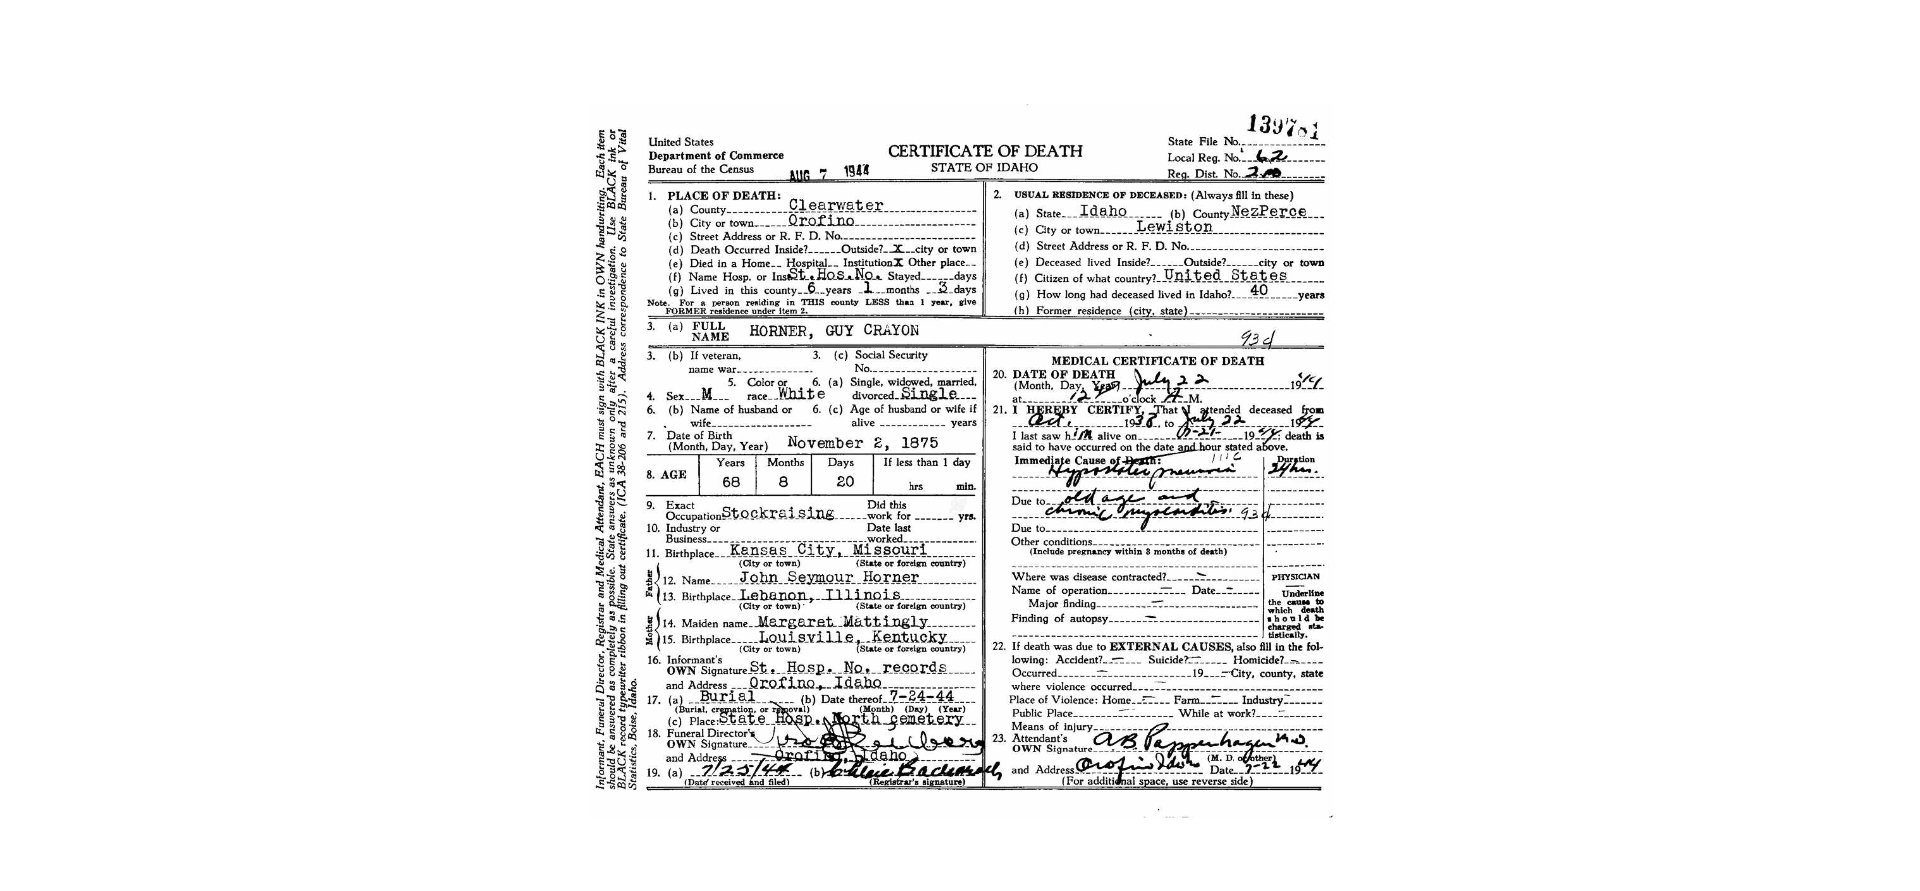 Informant, Funeral Director, Registrar and Medical Attendant, EACH must sign with BLACK INK in OWN handwriting. Each item
should be answered as completely as possible. State answers as unknown only after a careful investigation. Use BLACK ink or
BLACK record typewriter ribbon in filling out certificate. (ICA 38-206 and 215). Address correspondence to State Bureau of Vital
Statistics, Boise, Idaho.
United States
Department of Commerce
Bureau of the Census
AUG 7 1944
CERTIFICATE OF DEATH
STATE OF IDAHO
139701
State File No.
Local Reg. No. 62
Reg. Dist. No.
1. PLACE OF DEATH:
(a) County Clearwater
(b) City or town Orofino
(c) Street Address or R. F. D. No.
(d) Death Occurred Inside? Outside? X city or town
(e) Died in a Home Hospital Institution X Other place
(f) Name Hosp. or Ins St.Hos.No. Stayed days
(g) Lived in this county 6 years 1 months 3 days
Note. For a person residing in THIS county LESS than 1 year, give
FORMER residence under item 2.
2. USUAL RESIDENCE OF DECEASED: (Always fill in these)
(a) State Idaho (b) County NezPerce
(c) City or town Lewiston
(d) Street Address or R. F. D. No.
(e) Deceased lived Inside? Outside? city or town
(f) Citizen of what country? United States
(g) How long had deceased lived in Idaho? 40 years
(h) Former residence (city, state)
3. (a) FULL NAME HORNER, GUY CRAYON
93d
3. (b) If veteran, name war
3. (c) Social Security No.
4. Sex M 5. Color or race White 6. (a) Single, widowed, married, divorced Single
6. (b) Name of husband or wife
6. (c) Age of husband or wife if alive years
7. Date of Birth (Month, Day, Year) November 2, 1875
8. AGE Years 68 Months 8 Days 20 If less than 1 day hrs min.
9. Exact Occupation Stockraising Did this work for yrs.
10. Industry or Business Date last worked
11. Birthplace Kansas City, Missouri
(City or town) (State or foreign country)
Father
12. Name John Seymour Horner
13. Birthplace Lebanon, Illinois
(City or town) (State or foreign country)
Mother
14. Maiden name Margaret Mattingly
15. Birthplace Louisville, Kentucky
(City or town) (State or foreign country)
16. Informant's OWN Signature St. Hosp. No. records
and Address Orofino, Idaho
17. (a) Burial (b) Date thereof 7-24-44
(Burial, cremation, or removal) (Month) (Day) (Year)
(c) Place: State Hosp. North cemetery
18. Funeral Director's OWN Signature
and Address Orofino, Idaho
19. (a) 7/25/44 (b)
(Date received and filed) (Registrar's signature)
MEDICAL CERTIFICATE OF DEATH
20. DATE OF DEATH
(Month, Day, Year) July 22 1944
at 12 o'clock A M.
21. I HEREBY CERTIFY, That I attended deceased from
Oct. 1938 to July 22 1944
I last saw him alive on 7-21- 1944; death is
said to have occurred on the date and hour stated above.
Immediate Cause of Death: Duration
Hypostatic pneumonia 24 hrs.
Due to old age and
chronic myocarditis. 93d
Due to
Other conditions
(Include pregnancy within 3 months of death)
Where was disease contracted?
Name of operation Date
Major finding
Finding of autopsy
PHYSICIAN
Underline
the cause to
which death
should be
charged sta-
tistically.
22. If death was due to EXTERNAL CAUSES, also fill in the fol-
lowing: Accident? Suicide? Homicide?
Occurred 19 City, county, state
where violence occurred
Place of Violence: Home Farm Industry
Public Place While at work?
Means of injury
23. Attendant's OWN Signature A.B. Pappenhagen M.D.
(M. D. or other)
and Address Orofino Idaho Date 7-22 1944
(For additional space, use reverse side)